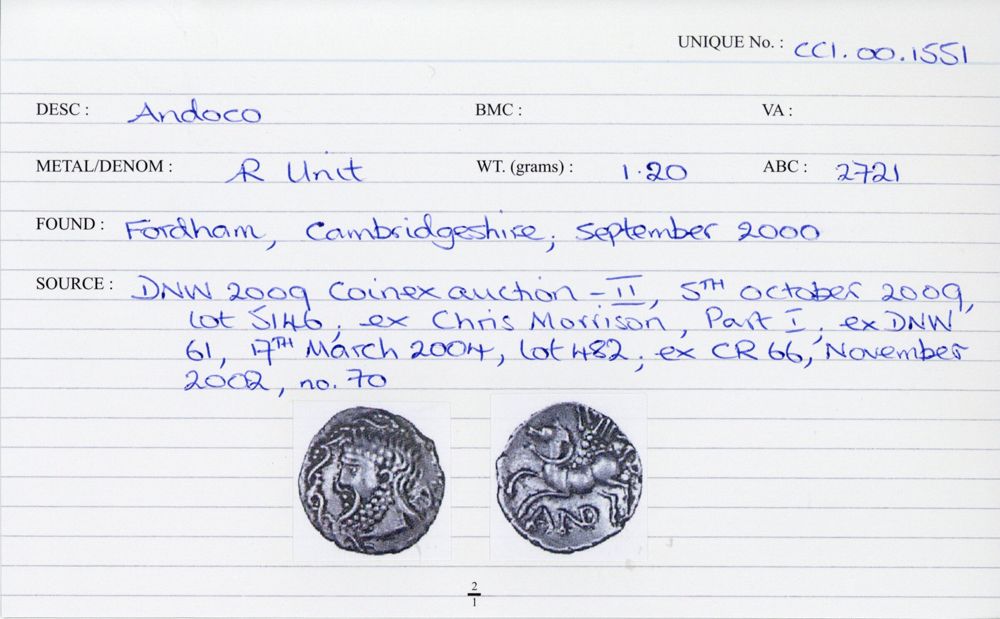 UNIQUE No. : CCI. 00. 1551
DESC : Andoco BMC : VA :
METAL/DENOM : R Unit WT. (grams) : 1.20 ABC : 2721
FOUND : Fordham, Cambridgeshire; September 2000
SOURCE : DNW 2009 Coinex auction - II, 5TH October 2009,
lot 5146; ex Chris Morrison, Part I; ex DNW
61, 17TH March 2004, lot 482; ex CR 66, November
2002, no. 70
AND
2
1